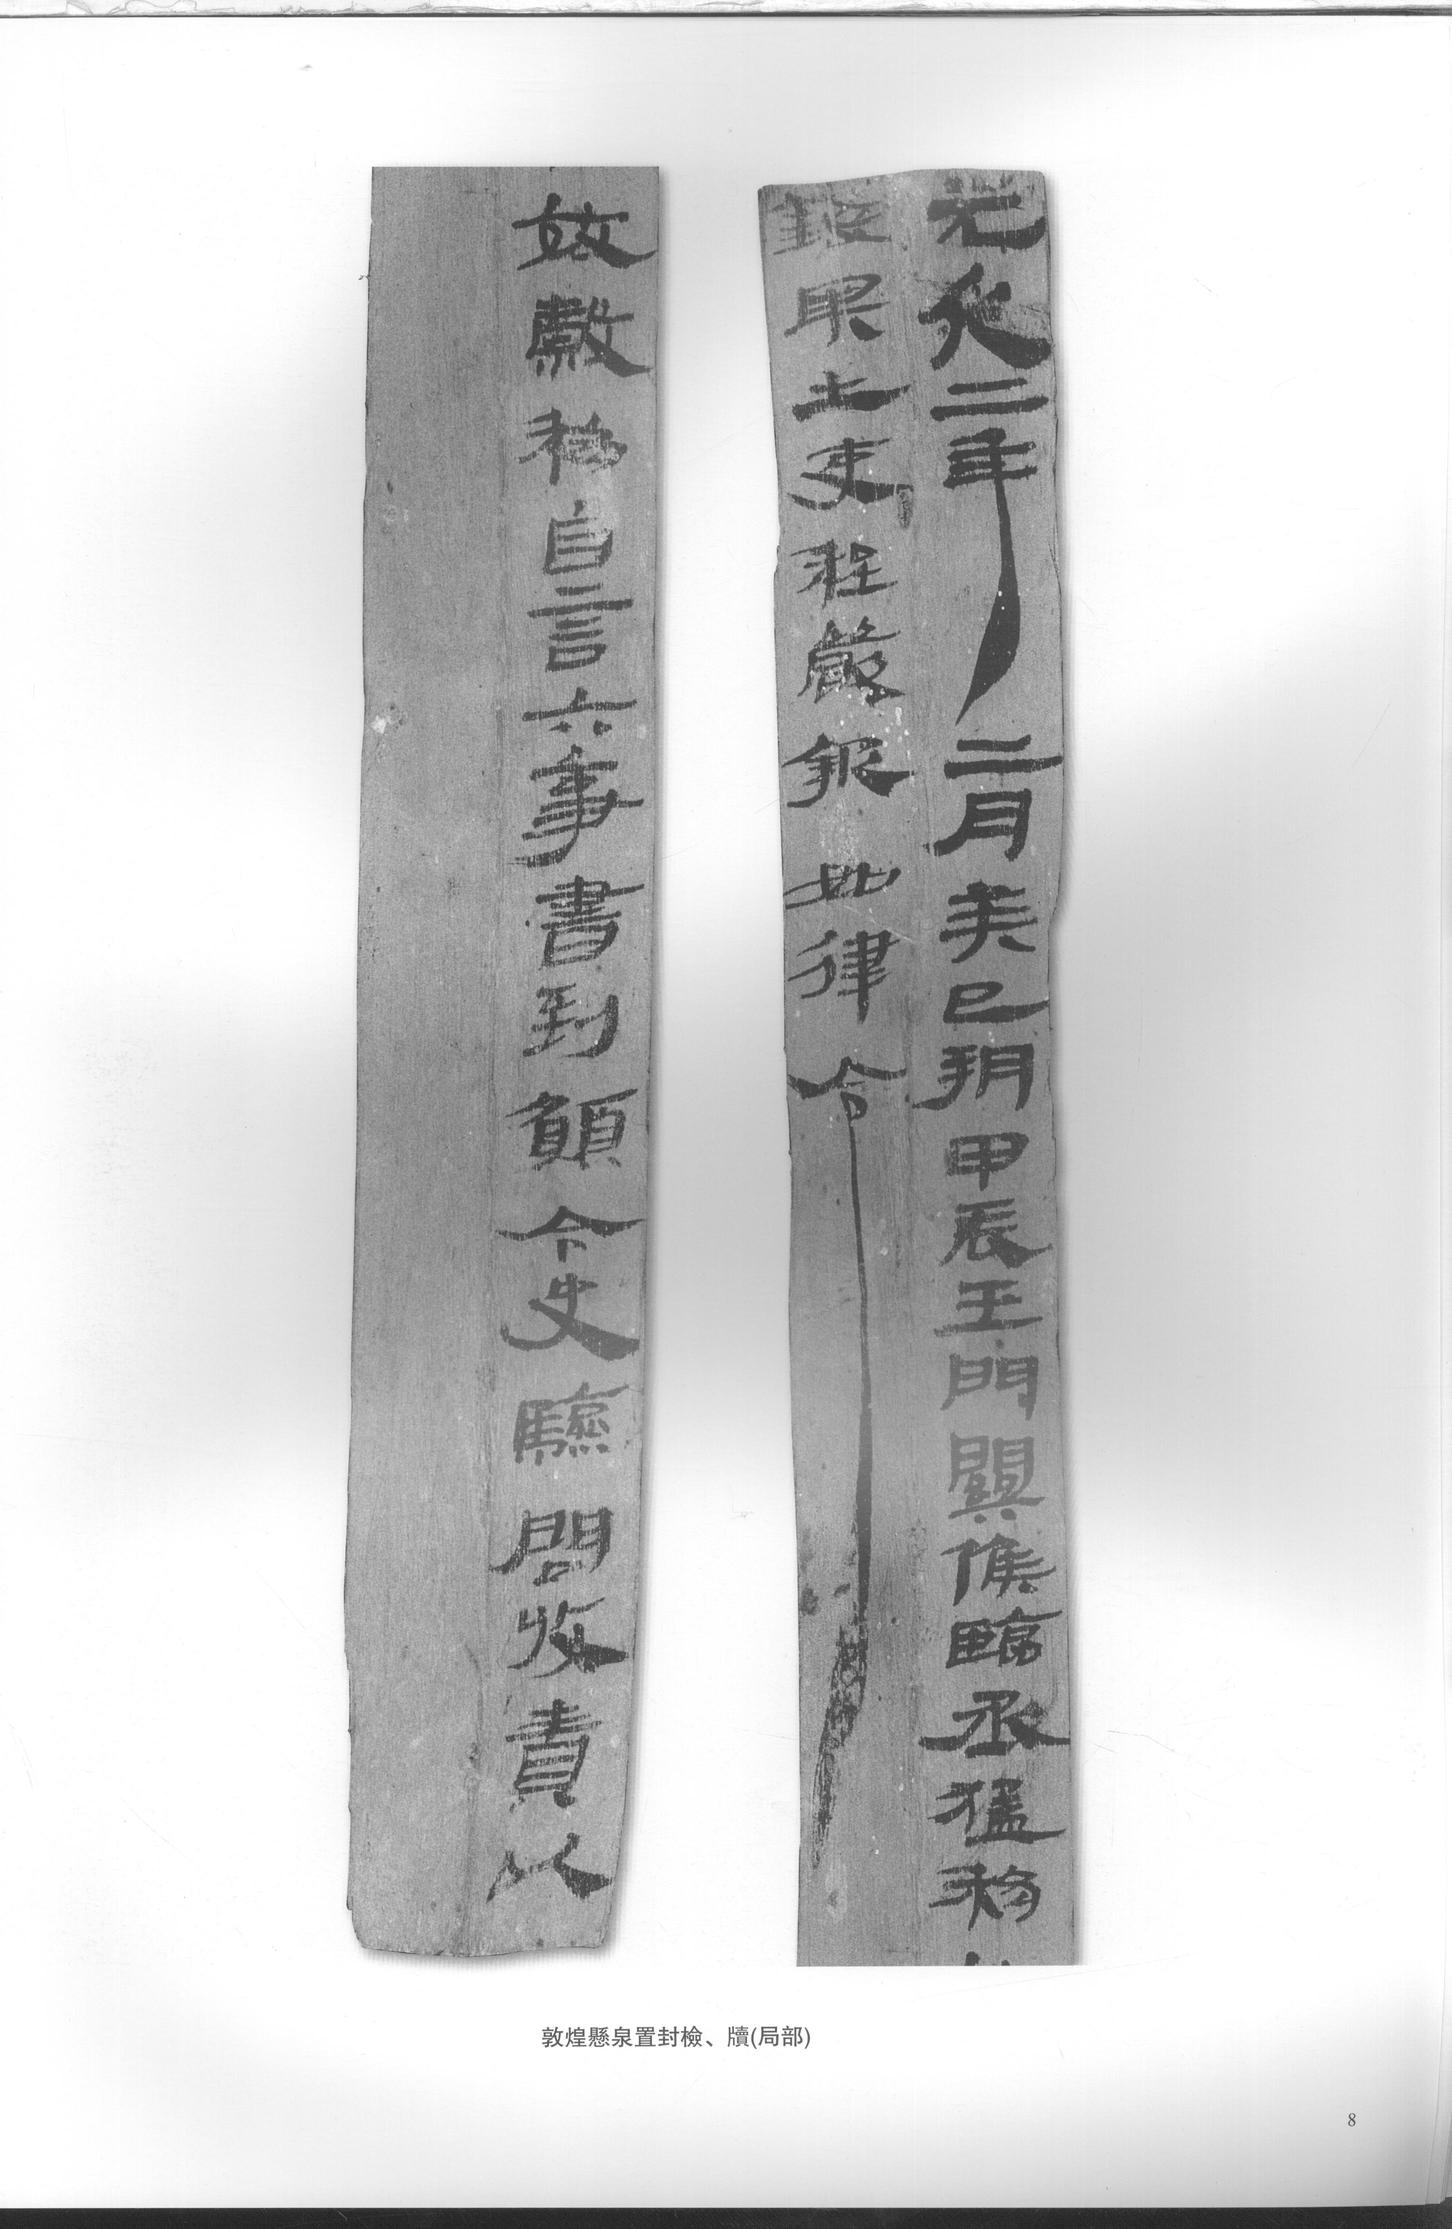 元延二年二月癸巳朔甲辰玉門關候臨丞猛移
錢畀士吏程嚴報如律令
效穀移自言六事書到願令史驗問收責以
敦煌懸泉置封檢、牘(局部)
8